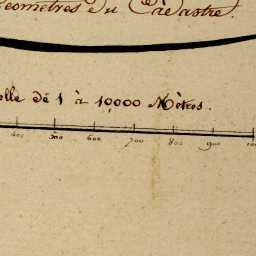 Géomètres du Cadastre.
elle de 1 à 10,000 Mètres.
400 500 600 700 800 900 100